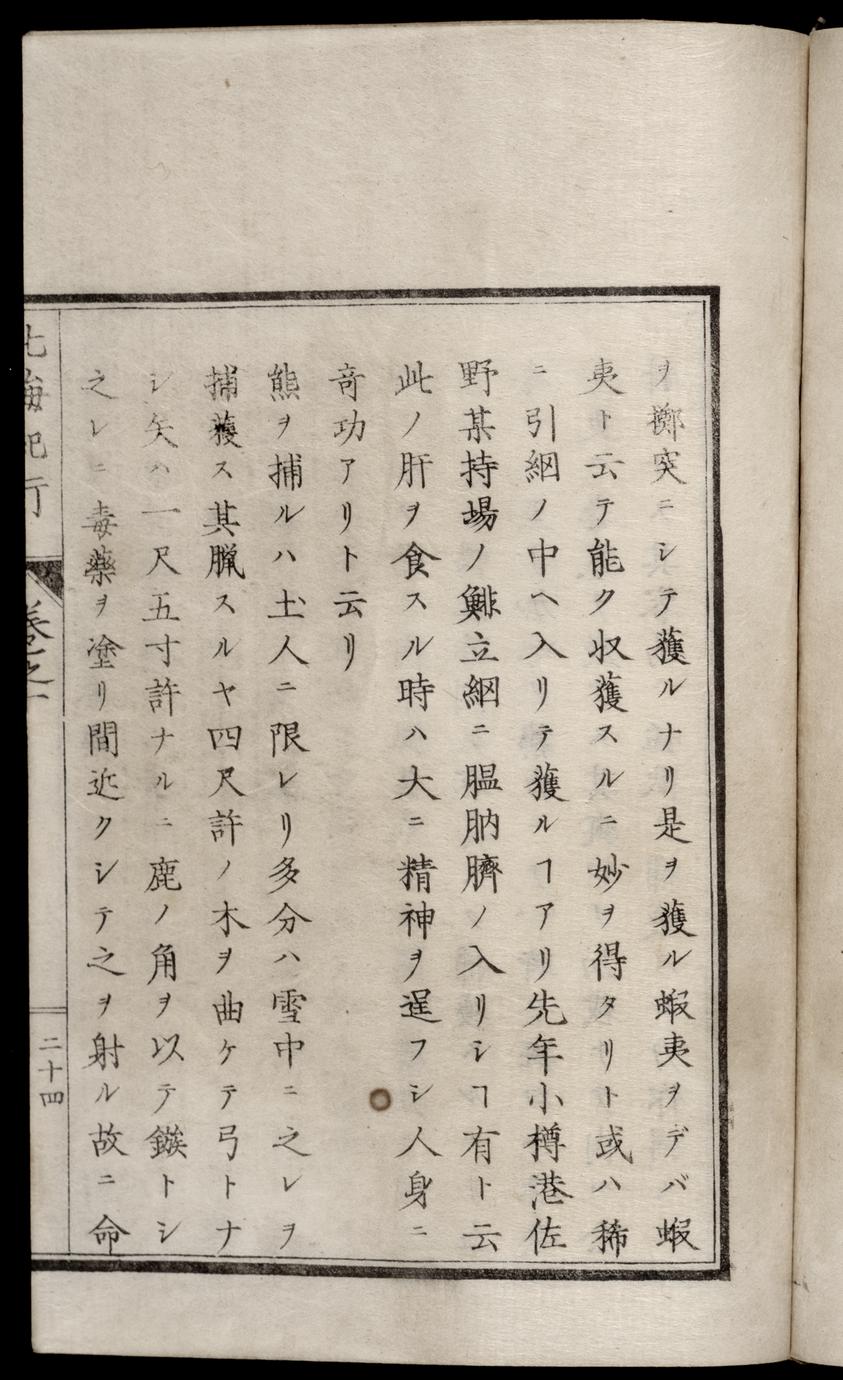 ヲ擲突ニシテ獲ルナリ是ヲ獲ル蝦夷ヲデバ蝦
夷ト云テ能ク収獲スルニ妙ヲ得タリト或ハ稀
ニ引綱ノ中ヘ入リテ獲ルヿアリ先年小樽港佐
野某持場ノ鯡立綱ニ膃肭臍ノ入リシヿ有ト云
此ノ肝ヲ食スル時ハ大ニ精神ヲ逞フシ人身ニ
奇功アリト云リ
熊ヲ捕ルハ土人ニ限レリ多分ハ雪中ニ之レヲ
捕獲ス其臘スルヤ四尺許ノ木ヲ曲ケテ弓トナ
シ矢ハ一尺五寸許ナルニ鹿ノ角ヲ以テ鏃トシ
之レニ毒藥ヲ塗リ間近クシテ之ヲ射ル故ニ命
北海紀行
卷之一
二十四